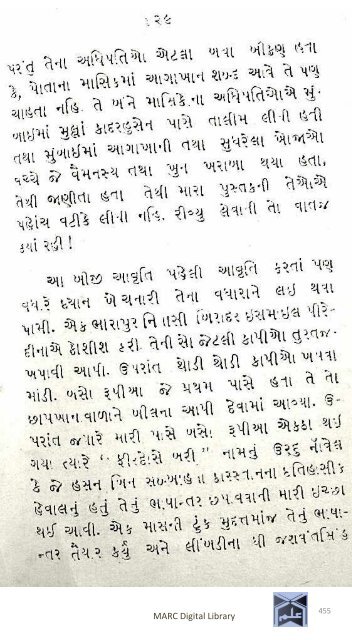 ૧૨૯
પરંતુ તેના અધિપતિઓ એટલા બધા બીકણ હતા
કે, પોતાના માસિકમાં આગાખાન શબ્દ આવે તે પણ
ચાહતા નહિ. તે બંને માસિકોના અધિપતિઓએ મું-
બાઈમાં મુલ્લાં કાદરહુસેન પાસે તાલીમ લીધી હતી
તથા મુંબાઈમાં આગાખાની તથા સુધરેલા ખોજાઓ
વચ્ચે જે વૈમનસ્ય તથા ખુન ખરાબા થયા હતા,
તેથી જાણીતા હતા તેથી મારા પુસ્તકની તેઓએ
પહોંચ વટીકે લીધી નહિ. રીવ્યુ લેવાની તો વાતજ
કયાં રહી!
આ બીજી આવૃતિ પહેલી આવૃતિ કરતાં પણ
વધારે ધ્યાન ખેંચનારી તેના વધારાને લઇ થવા
પામી. એક ભારાપુર નિવાસી બિરાદર ઇસમાઇલ પીરે-
દીનાએ કોશીશ કરી તેની સો જેટલી કાપીઓ તુરતજ
ખપાવી આપી. ઉપરાંત થોડી થોડી કાપીઓ ખપવા
માંડી. બસો રૂપીઆ જે પ્રથમ પાસે હતા તે તો
છાપખાનાવાળાને બીલના આપી દેવામાં આવ્યા. ઉ-
પરાંત જ્યારે મારી પાસે બસો રૂપીઆ એકઠા થઈ
ગયા ત્યારે "ફીરદોસે બરી" નામનું ઉરદુ નૉવેલ
કે જે હસન બિન સબ્બાહના કારસ્તાનના ઇતિહાસીક
હેવાલનું હતું તેનું ભાષાન્તર છપાવવાની મારી ઇચ્છા
થઈ આવી. એક માસની ટુંક મુદતમાંજ તેનું ભાષા-
ન્તર તૈયાર કર્યું અને લીંબડીના શ્રી જશવંતસિંહ
MARC Digital Library
455